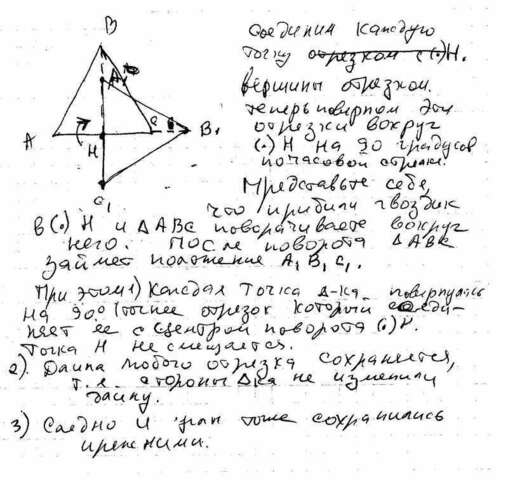 B
A₁
A
C
B₁
H
C₁
Соединим каждую
точку отрезком с (•)H.
вершины отрезком.
теперь повернем эти
отрезки вокруг
(•) H на 90 градусов
по часовой стрелк.
Представьте себе,
что прибили гвоздик
в (•) H и Δ ABC поворачиваете вокруг
него. После поворота Δ ABC
займет положение A₁ B₁ C₁.
При этом 1) Каждая точка Δ-ка повернулась
на 90° (точнее отрезок который соеди-
няет ее с центром поворота (•) H.
Точка H не смещается.
2). Длина любого отрезка сохраняется,
т.е. стороны Δка не изменили
длину.
3) Следно и тоже сохранились
прежними.